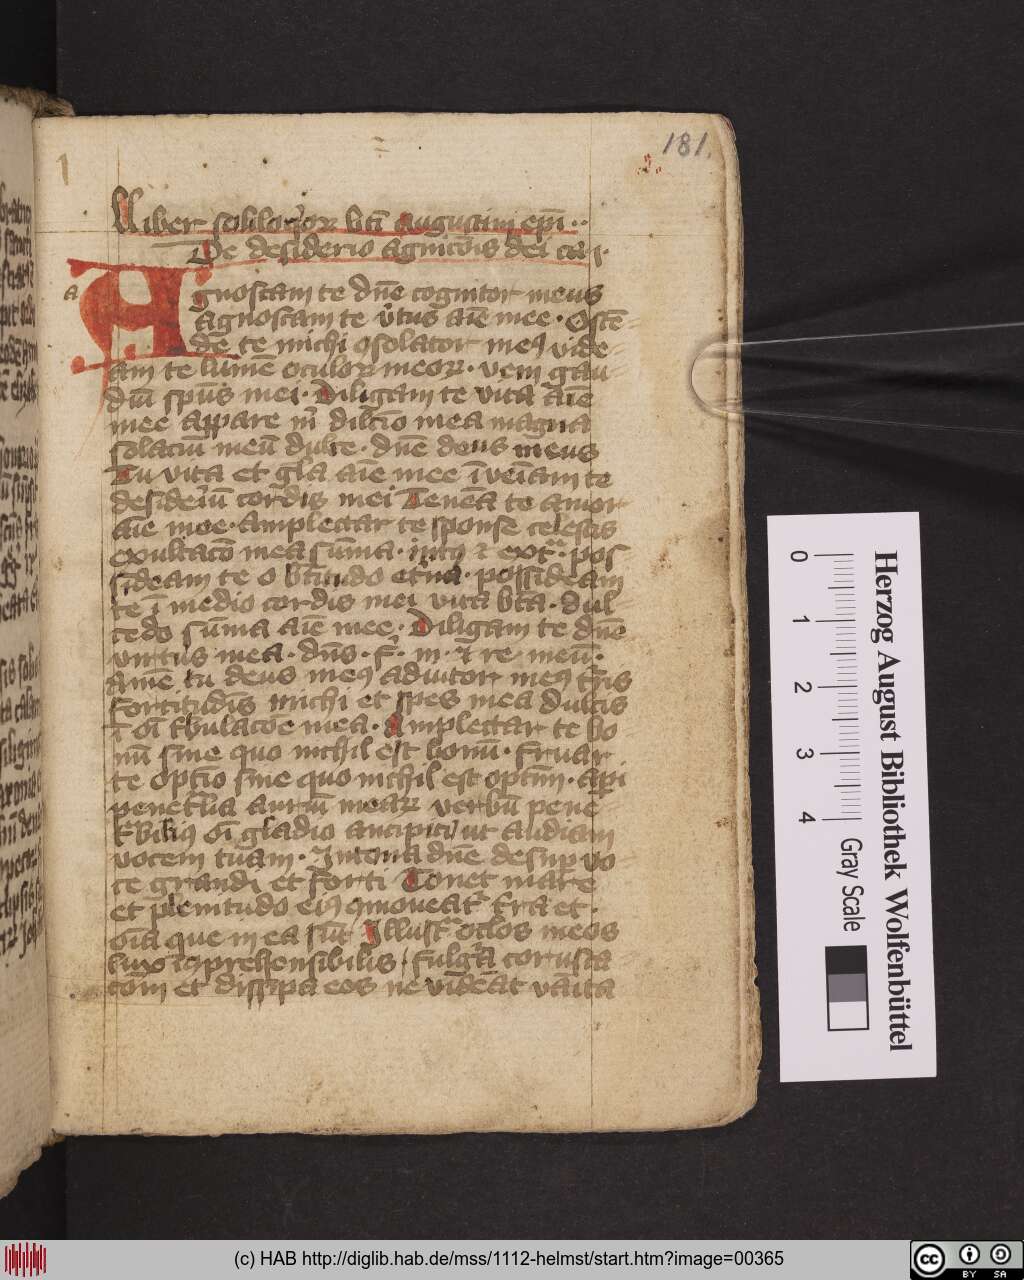 181.
Liber soliloq̄ior bt̄i augustini ep̄i
De desiderio agnicōis dei ca i
a
Agnoscam te dn̄e cognitor meus
agnoscam te v̓tus aīe mee · Ostē
de te michi ꝯsolator meꝰ vide
am te lumē oculoꝝ meoꝝ · veni gau
diū sp̄us mei · Diligam te vita aīe
mee appare m̄ dilcīo mea magna
solaciū meū dulce · dn̄e deus meus
Tu vita et gl̄a aīe mee īveīam te
desideriū cordis mei Teneā te amor
aīe mee · amplectar te sponse celestis
exultacō mea sūma · int̓ ⁊ ext̓ · pos
sideam te o bt̄itudo et̓na · possideam
te ī medio cordis mei vita bt̄a · dul
cedo sūma aīe mee · Diligam te dn̄e
virtus mea · dn̄s · f · m · ⁊ re · meū ·
ame tu deus meꝰ adiutor meꝰ t̓ris
fortitudīs michi et spes mea dulcis
ī oī t̓bulacōe mea · Amplectar te bo
nū sine quo nichil est bonū · fruar
te optīo sine quo nichil est optm̄ · api
penet̓lia auriū mearꝝ verbū pene
t̓bilius oī gladio ancipiti ut audiam
vocem tuam · Intona dn̄e desup vo
ce grandi et forti Tonet mare
et plenitudo eiꝰ ꝯmoueat̓ t̓ra et ·
oīa que in ea sūt Illust̓ oclos meos
lux īꝯprehensibilis · fulgā corusca
com et dissipa eos ne videāt vāita
Herzog August Bibliothek Wolfenbüttel
0 1 2 3 4 Gray Scale
(c) HAB http://diglib.hab.de/mss/1112-helmst/start.htm?image=00365
cc BY SA